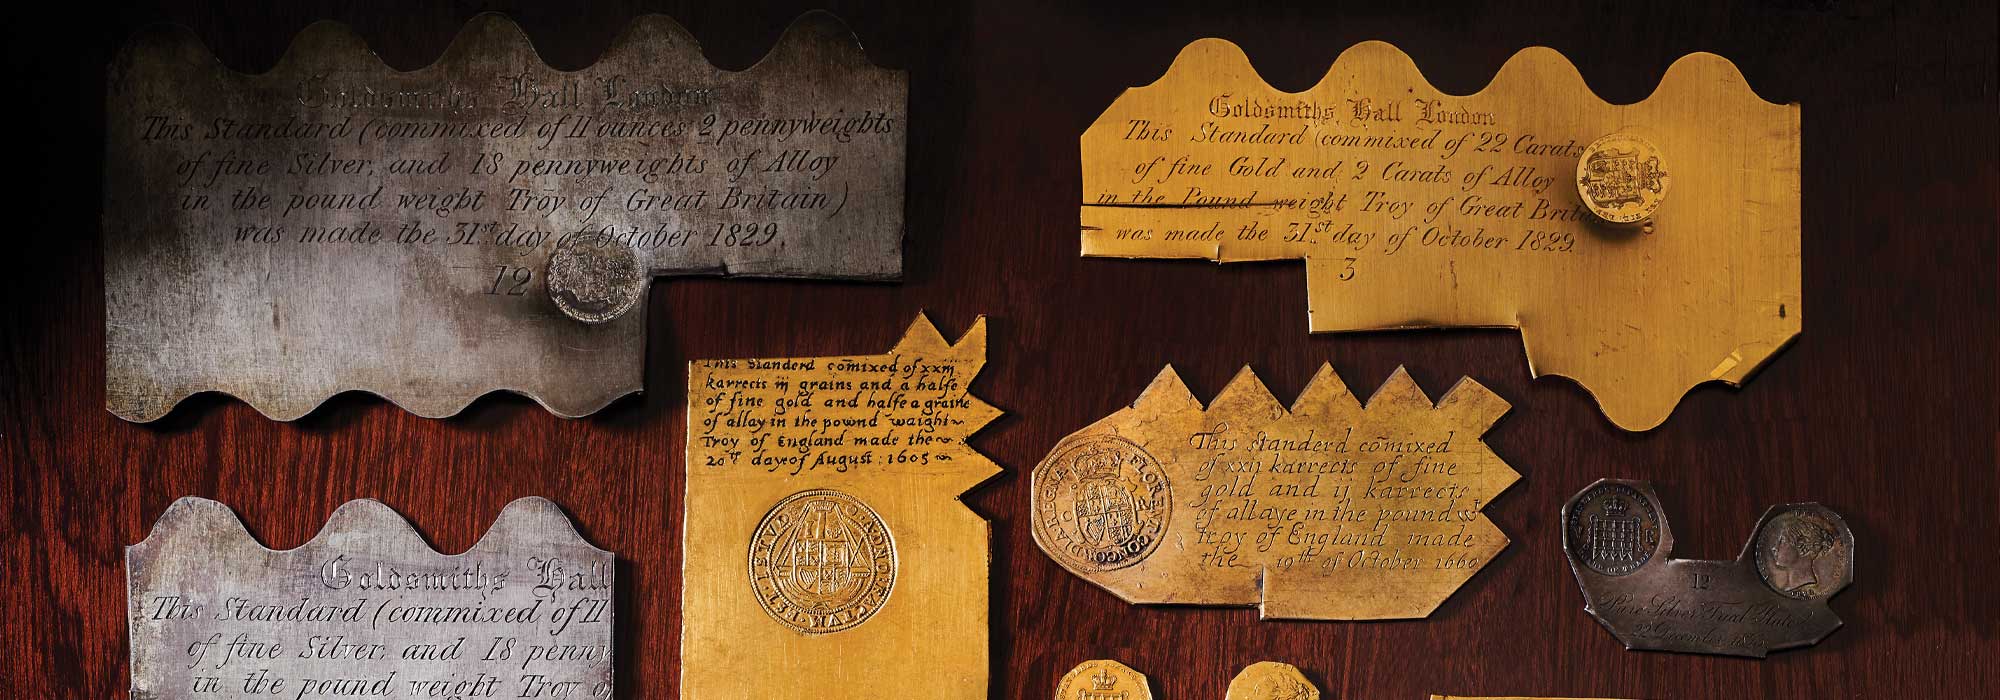 Goldsmiths Hall London
This Standard (commixed of 11 ounces 2 pennyweights
of fine Silver, and 18 pennyweights of Alloy
in the pound weight Troy of Great Britain)
was made the 31st day of October 1829.
12
Goldsmiths Hall London
This Standard (commixed of 22 Carats
of fine Gold and 2 Carats of Alloy
in the Pound weight Troy of Great Brita
was made the 31st day of October 1829.
3
This Standerd comixed of xxiij
karrects iij grains and a halfe
of fine gold and halfe a graine
of allay in the pownd waight
Troy of England made the
20th day of August: 1605
This standerd comixed
of xxij karrects of fine
gold and ij karrects
of allaye in the pound wt
troy of England made
the 19th of October 1660
FLORENT CONCORDIA REGNA
12
Pure Silver Trial Plate
22 December
Goldsmiths Hall
This Standard (commixed of 11
of fine Silver, and 18 penny
in the pound weight Troy o